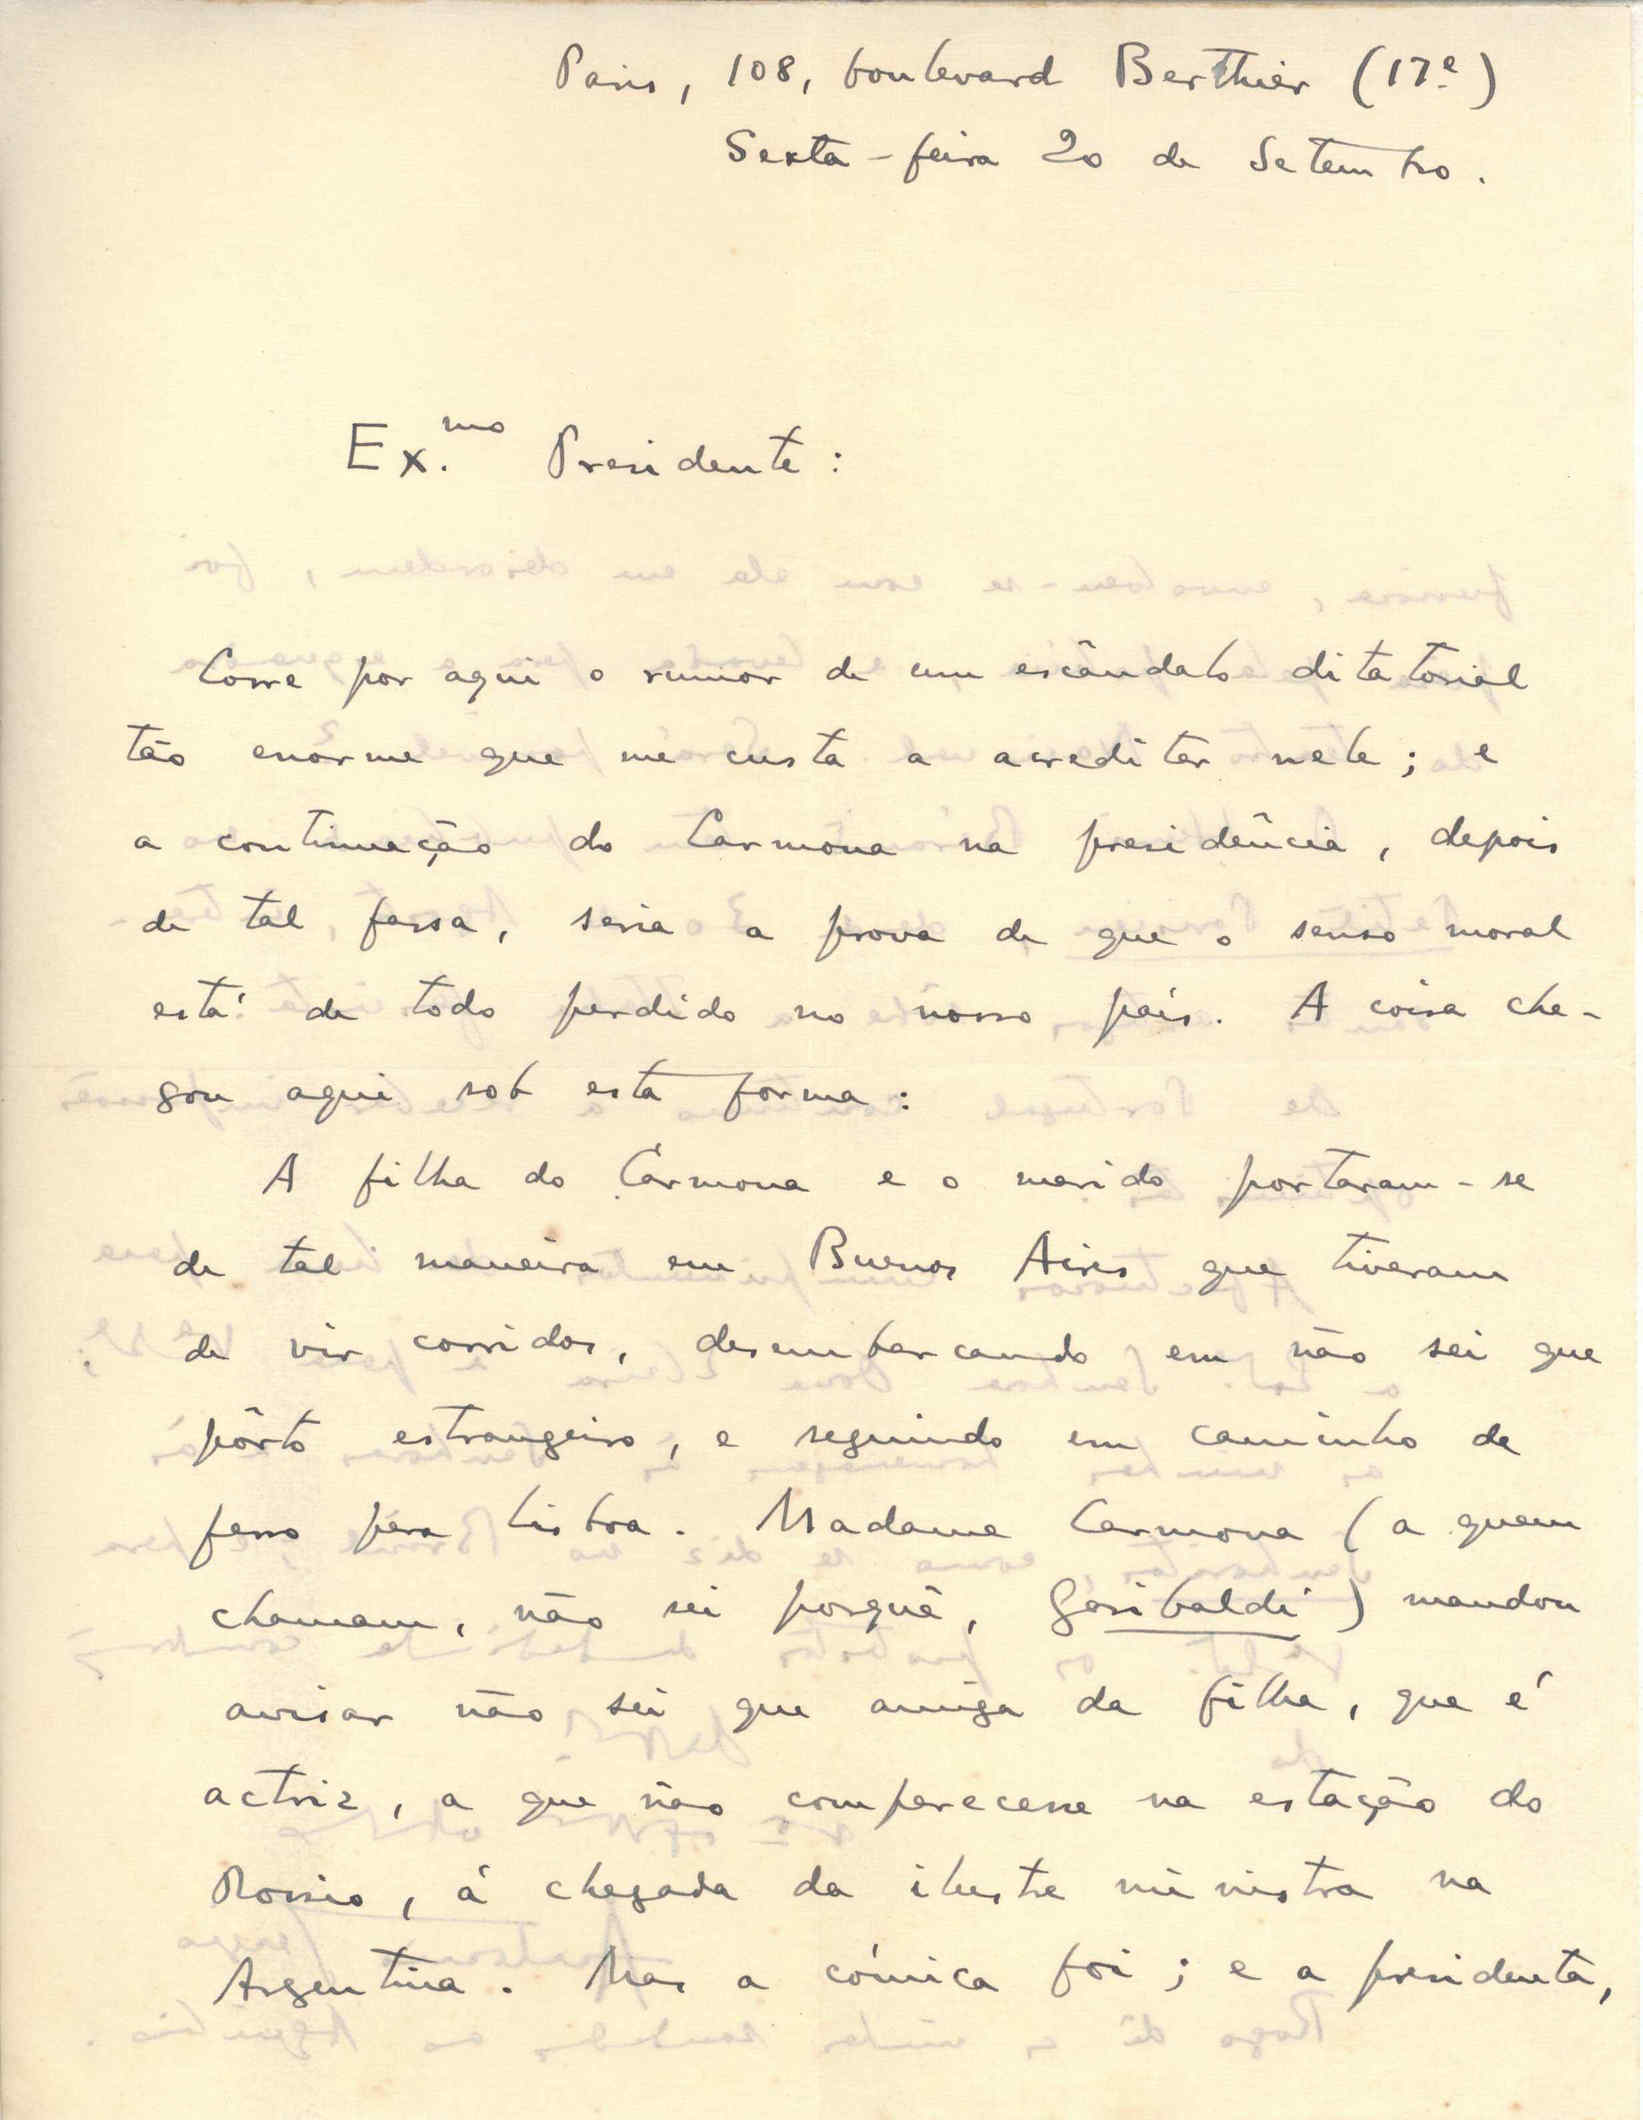 Paris, 108, boulevard Berthier (17e)
Sexta-feira 20 de Setembro.
Ex.mo Presidente:
Corre por aqui o rumor de um escândalo ditatorial
tão enorme que me custa a acreditar nele; e
a continuação do Carmona na presidência, depois
de tal farsa, seria a prova de que o senso moral
está de todo perdido no nosso país. A coisa che-
gou aqui sob esta forma:
A filha do Carmona e o marido portaram-se
de tal maneira em Buenos Aires que tiveram
de vir corridos, desembarcando em não sei que
pôrto estrangeiro, e seguindo em caminho de
ferro para Lisboa. Madame Carmona (a quem
chamam, não sei porquê, Garibaldi) mandou
avisar não sei que amiga da filha, que é
actriz, a que não comparecesse na estação do
Rossio, á chegada da ilustre ministra na
Argentina. Mas a cómica foi; e a presidenta,